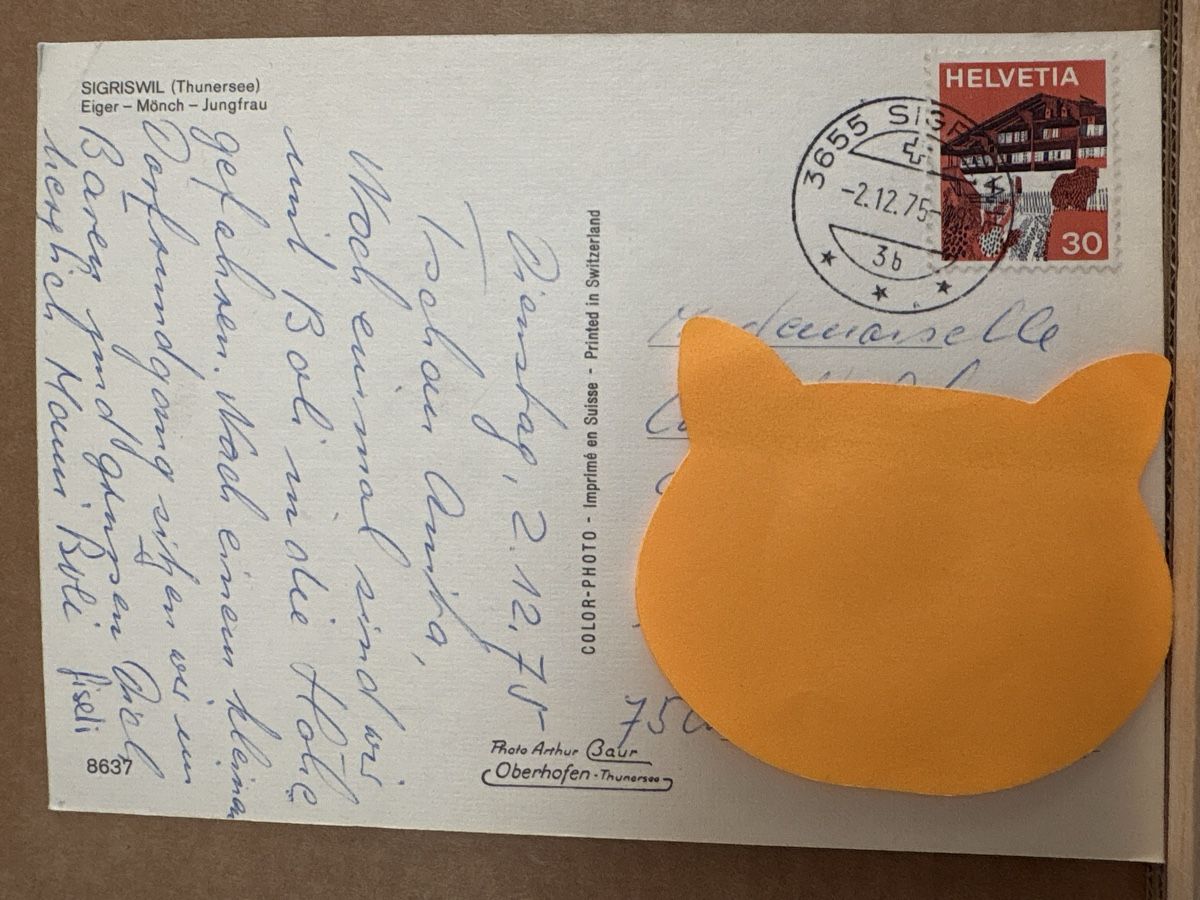 SIGRISWIL (Thunersee)
Eiger – Mönch – Jungfrau
HELVETIA
30
3655 SIGR
-2.12.75-
3b
Dienstag, 2.12.75
Tschau Anita,
Noch einmal sind wir
mit Boli in die Höhe
gefahren. Nach einem kleinen
Dorfrundgang sitzen wir im
Bären und grüssen Dich
herzlich Mami Boli
COLOR-PHOTO - Imprimé en Suisse - Printed in Switzerland
Mademoiselle
75
Photo Arthur Baur
Oberhofen - Thunersee
8637